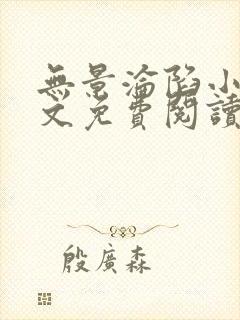 無景淪陷小
文免費閱讀
殷廣森